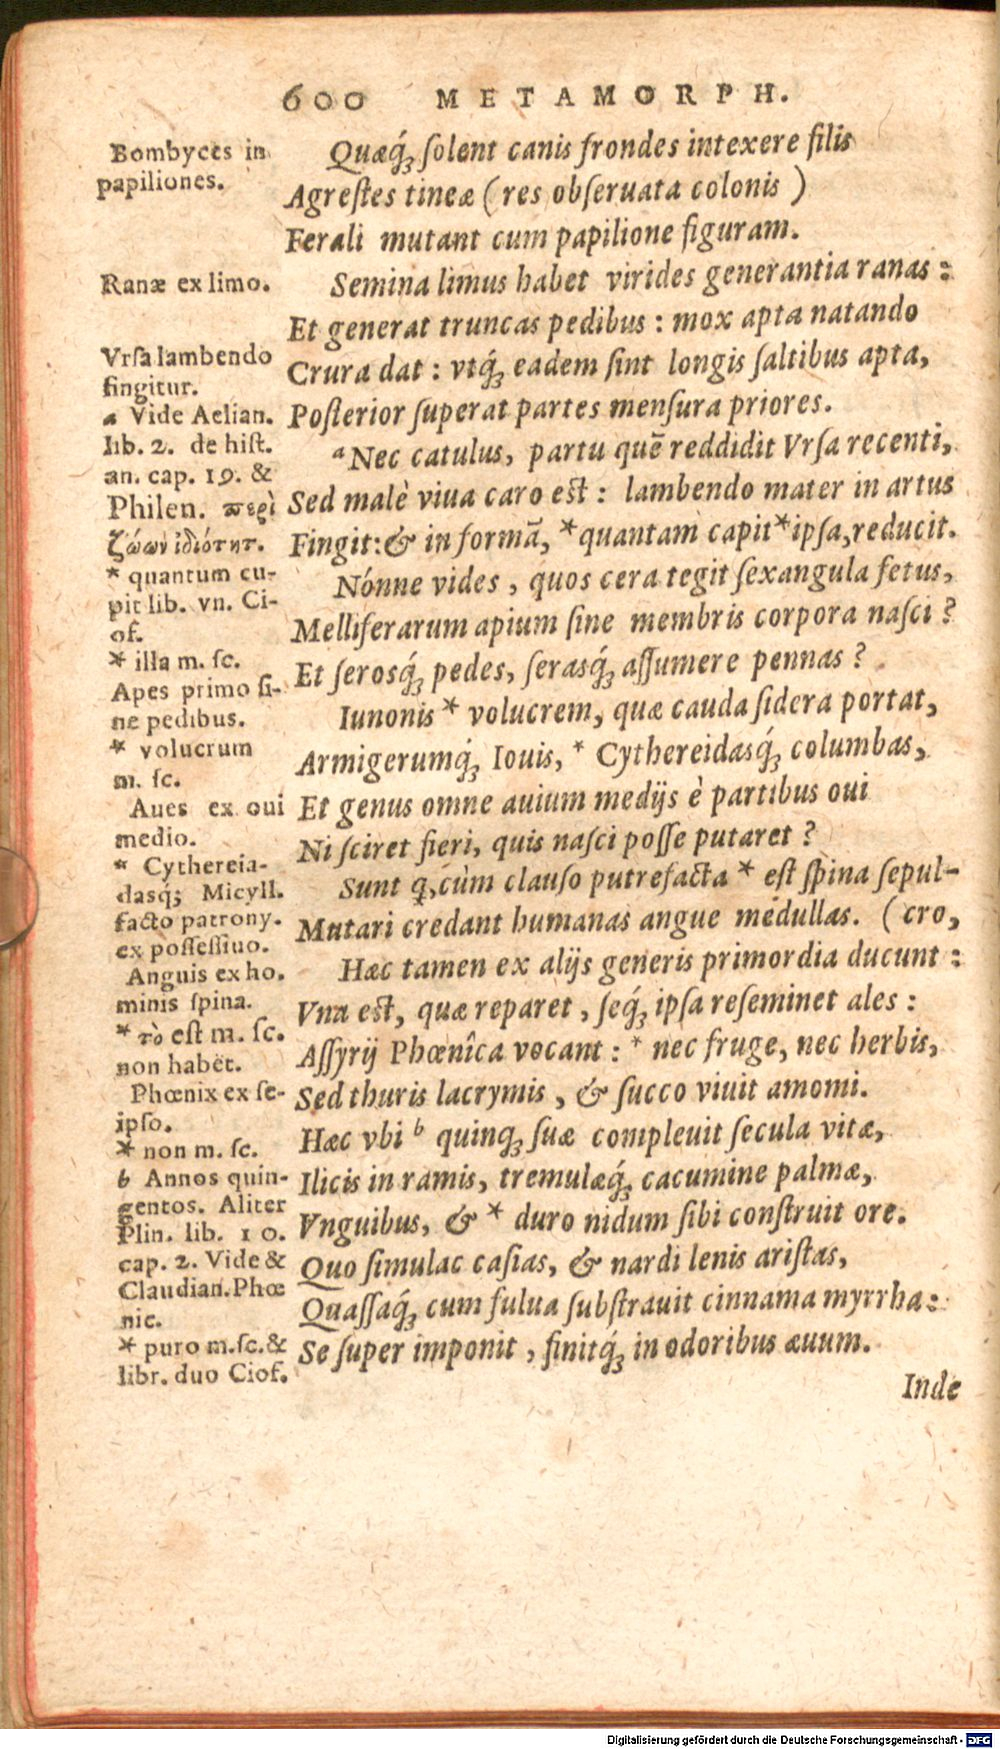 600 METAMORPH.
Bombyces in
papiliones.
Ranæ ex limo.
Vrſa lambendo
fingitur.
a Vide Aelian.
lib. 2. de hiſt.
an. cap. 19. &
Philen. περὶ
ζώων ἰδιότητ.
* quantum cu-
pit lib. vn. Ci-
of.
* illa m. ſc.
Apes primo ſi-
ne pedibus.
* volucrum
m. ſc.
Aues ex oui
medio.
* Cythereia-
dasq́; Micyll.
facto patrony.
ex poſſeſſiuo.
Anguis ex ho.
minis ſpina.
* τὸ eſt m. ſc.
non habēt.
Phœnix ex ſe-
ipſo.
* non m. ſc.
b Annos quin-
gentos. Aliter
Plin. lib. 10.
cap. 2. Vide &
Claudian. Phœ
nic.
* puro m. ſc. &
libr. duo Cioſ.
Quæq́ꝫ ſolent canis frondes intexere filis
Agreſtes tineæ (res obſeruata colonis)
Ferali mutant cum papilione figuram.
Semina limus habet virides generantia ranas:
Et generat truncas pedibus: mox apta natando
Crura dat: vtq́ꝫ eadem ſint longis ſaltibus apta,
Poſterior ſuperat partes menſura priores.
a Nec catulus, partu quē reddidit Vrſa recenti,
Sed malè viua caro eſt: lambendo mater in artus
Fingit: & in formā, * quantam capit * ipſa, reducit.
Nónne vides, quos cera tegit ſexangula fetus,
Melliferarum apium ſine membris corpora naſci?
Et ſerosq́ꝫ pedes, ſerasq́ꝫ aſſumere pennas?
Iunonis * volucrem, quæ cauda ſidera portat,
Armigerumq́ꝫ Iouis, * Cythereidasq́ꝫ columbas,
Et genus omne auium medijs è partibus oui
Ni ſciret fieri, quis naſci poſſe putaret?
Sunt q̨, cùm clauſo putrefacta * eſt ſpina ſepul-
Mutari credant humanas angue medullas. (cro,
Hæc tamen ex alijs generis primordia ducunt:
Vna eſt, quæ reparet, ſeq́ꝫ ipſa reſeminet ales:
Aſſyrij Phœnîca vocant: * nec fruge, nec herbis,
Sed thuris lacrymis, & ſucco viuit amomi.
Hæc vbi b quinqꝫ ſuæ compleuit ſecula vitæ,
Ilicis in ramis, tremulæq́ꝫ cacumine palmæ,
Vnguibus, & * duro nidum ſibi conſtruit ore.
Quo ſimulac caſias, & nardi lenis ariſtas,
Quaſſaq́ꝫ cum fulua ſubſtrauit cinnama myrrha:
Se ſuper imponit, finitq́ꝫ in odoribus æuum.
Inde
Digitalisierung gefördert durch die Deutsche Forschungsgemeinschaft - DFG